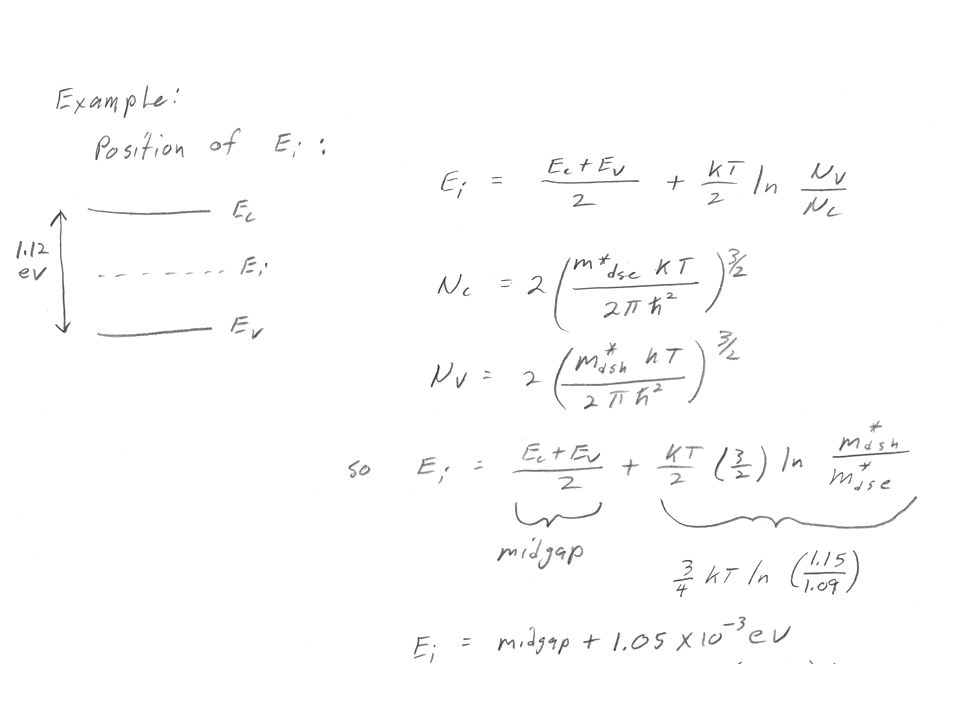 Example:
Position of Ei :
Ec
1.12
eV
Ei
Ev
Ei = (Ec + Ev)/2 + KT/2 ln Nv/Nc
Nc = 2 (m*dse KT / 2πħ²)^3/2
Nv = 2 (m*dsh KT / 2πħ²)^3/2
so Ei = (Ec + Ev)/2 + KT/2 (3/2) ln m*dsh/m*dse
midgap
3/4 KT ln (1.15/1.09)
Ei = midgap + 1.05 x 10^-3 eV